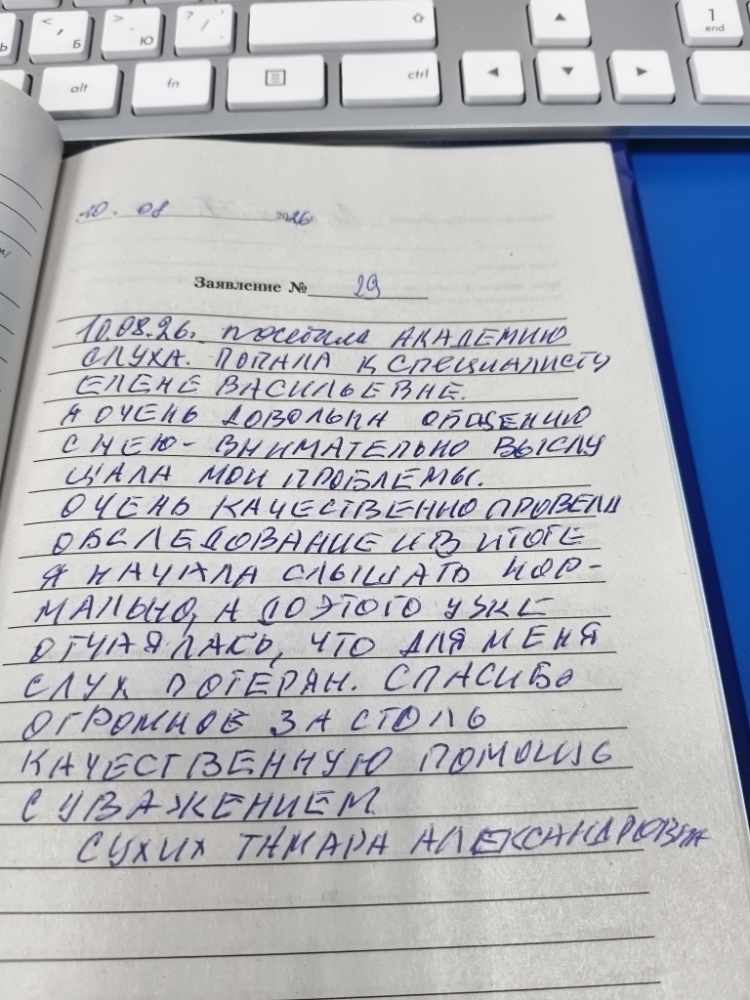 < , Б
> . Ю
? / ,
1 end
alt
fn
ctrl
10. 08 2026
Заявление № 29
10.08.26. посетила АКАДЕМИЮ
СЛУХА. ПОПАЛА К СПЕЦИАЛИСТУ
ЕЛЕНЕ ВАСИЛЬЕВНЕ.
Я ОЧЕНЬ ДОВОЛЬНА ОБЩЕНИЮ
С НЕЮ - ВНИМАТЕЛЬНО ВЫСЛУ
ШАЛА МОИ ПРОБЛЕМЫ.
ОЧЕНЬ КАЧЕСТВЕННО ПРОВЕЛА
ОБСЛЕДОВАНИЕ И В ИТОГЕ
Я НАЧАЛА СЛЫШАТЬ НОР-
МАЛЬНО, А ДО ЭТОГО УЖЕ
ОТЧАЯЛАСЬ, ЧТО ДЛЯ МЕНЯ
СЛУХ ПОТЕРЯН. СПАСИБО
ОГРОМНОЕ ЗА СТОЛЬ
КАЧЕСТВЕННУЮ ПОМОЩЬ
С УВАЖЕНИЕМ
СУХИХ ТАМАРА АЛЕКСАНДРОВНА